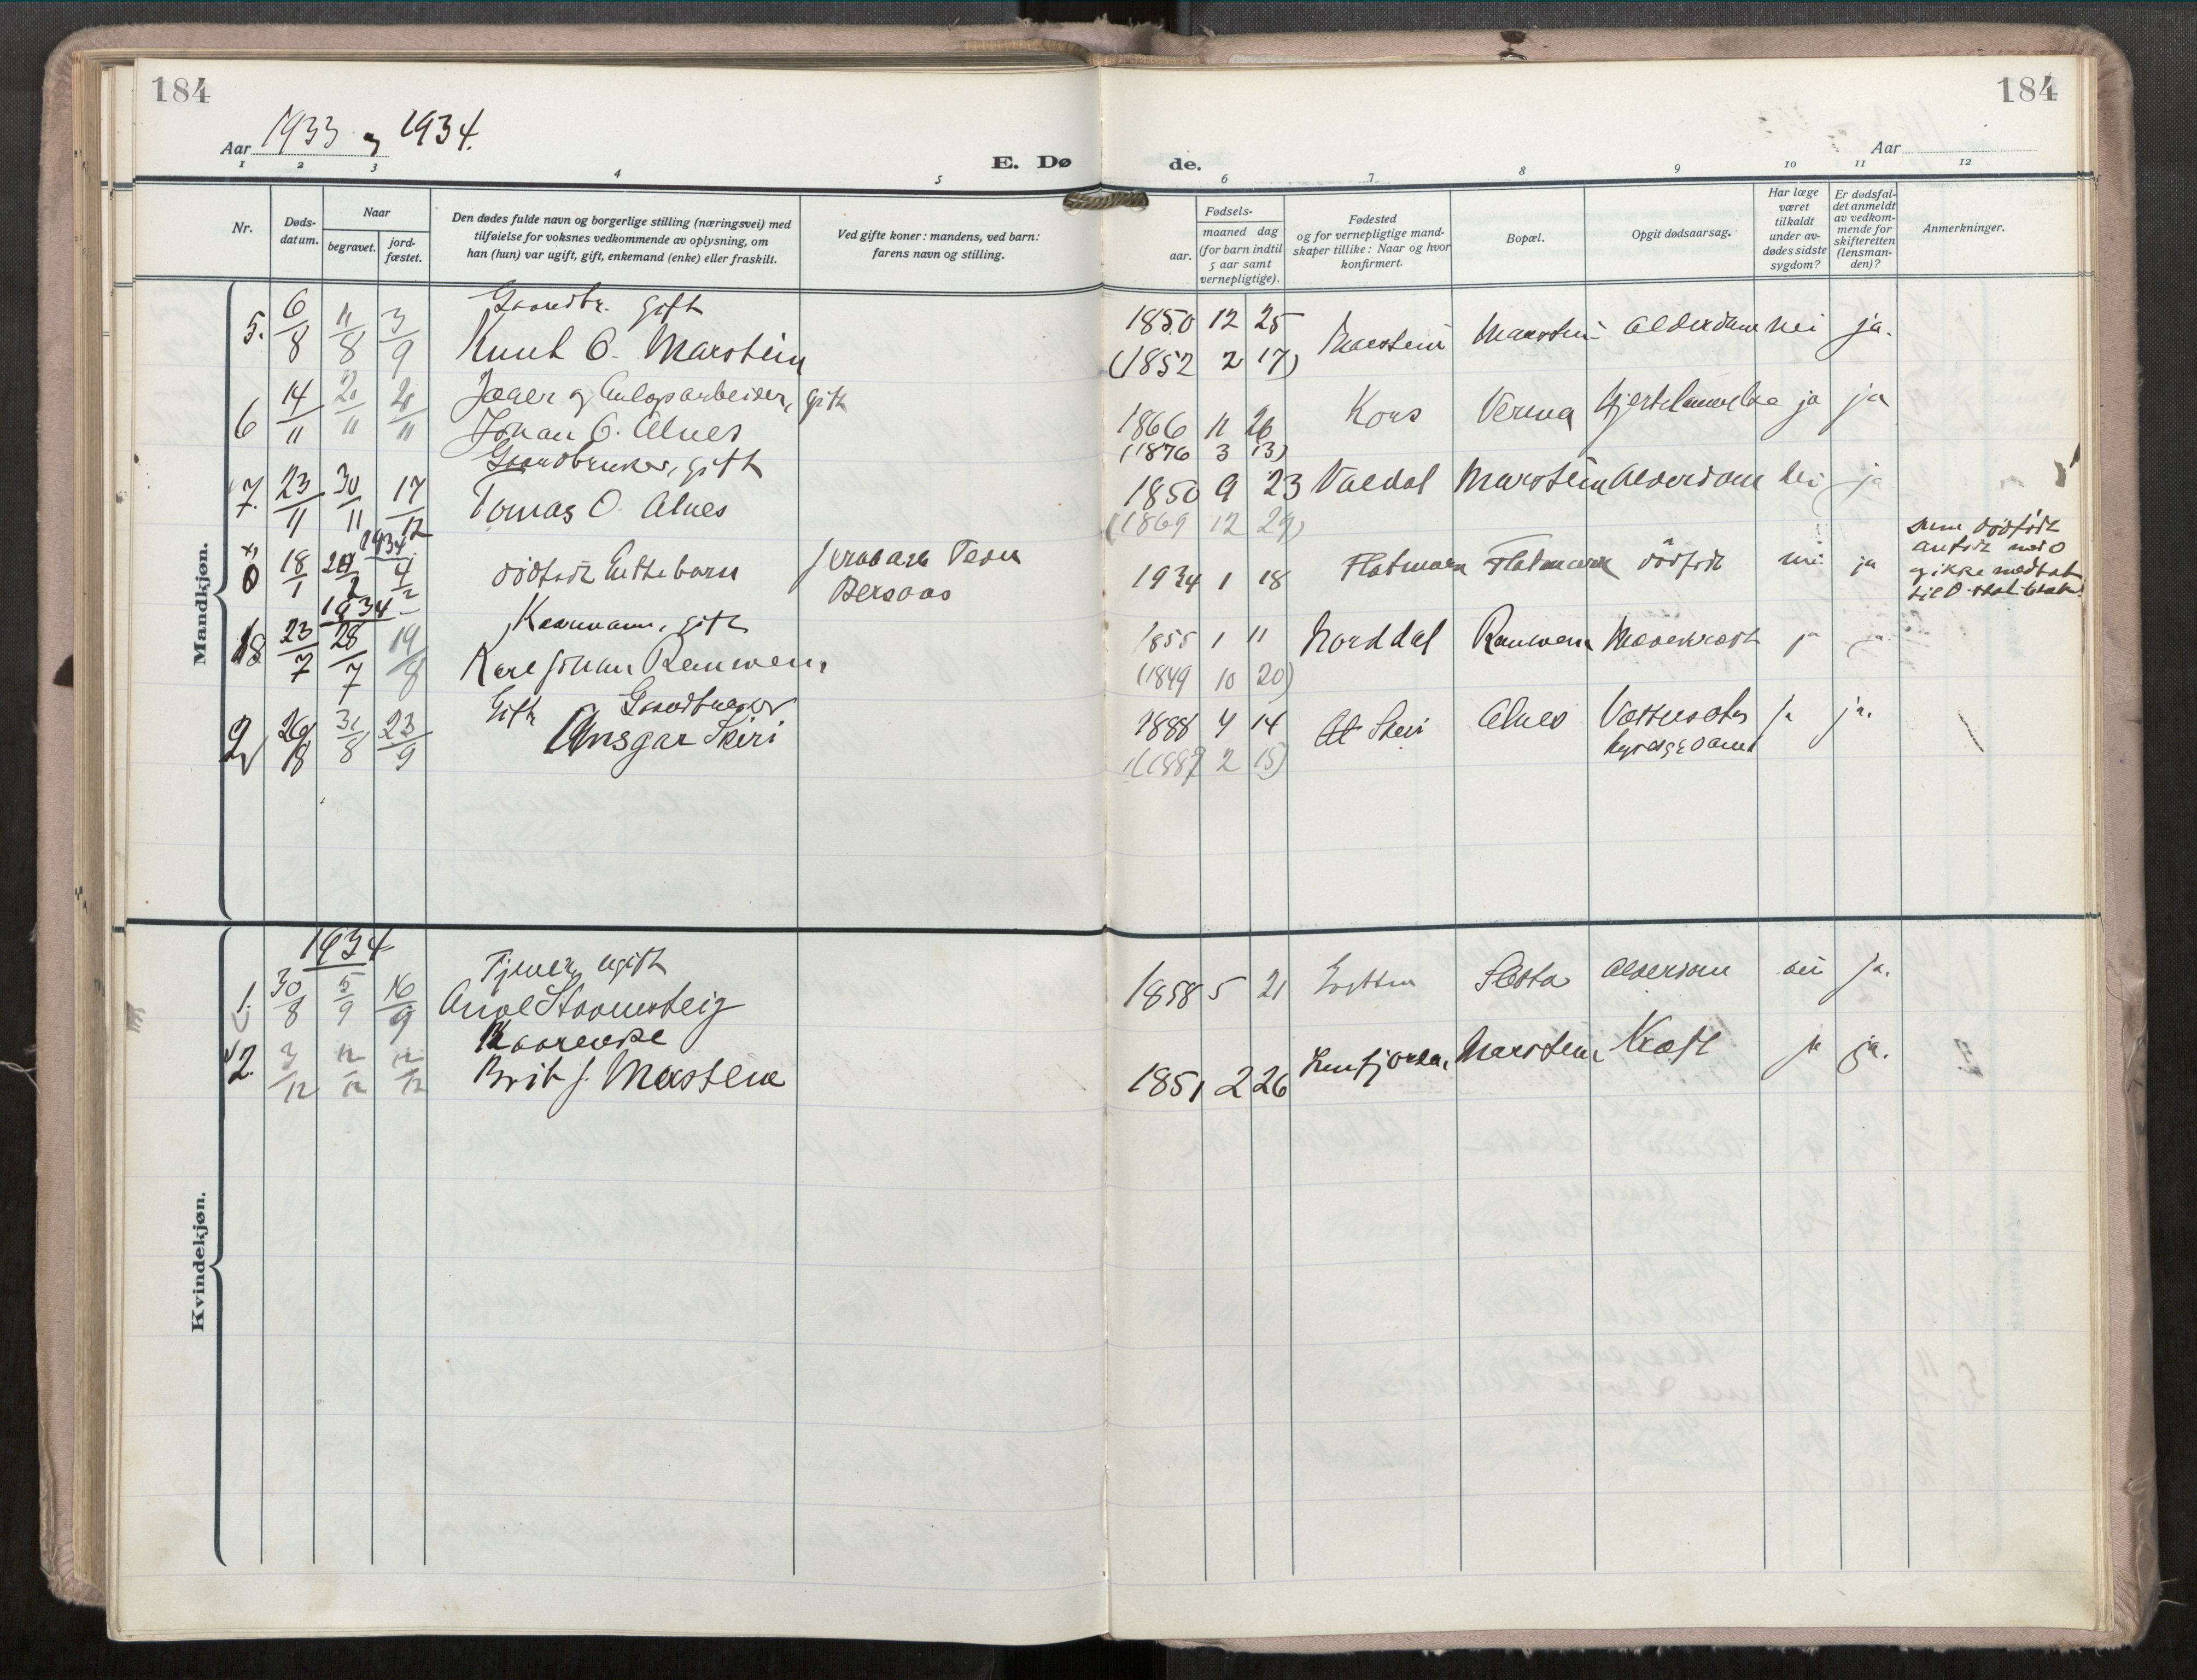 184
184
Aar 1933 og 1934.
Aar
E. Dø
de.
1 2 3 4 5 6 7 8 9 10 11 12
Nr.
Døds-
datum.
Naar
begravet.
jord-
fæstet.
Den dødes fulde navn og borgerlige stilling (næringsvei) med
tilføielse for voksnes vedkommende av oplysning, om
han (hun) var ugift, gift, enkemand (enke) eller fraskilt.
Ved gifte koner: mandens, ved barn:
farens navn og stilling.
Fødsels-
aar.
maaned dag
(for barn indtil
5 aar samt
vernepligtige).
Fødested
og for vernepligtige mand-
skaper tillike: Naar og hvor
konfirmert.
Bopæl.
Opgit dødsaarsag.
Har læge
været
tilkaldt
under av-
dødes sidste
sygdom?
Er dødsfal-
det anmeldt
av vedkom-
mende for
skifteretten
(lensman-
den)?
Anmerkninger.
Mandkjøn.
Gaardbr. gift
5. 6/8 11/8 3/9 Knut O. Marstein 1850 12 25 Marstein Marstein Alderdom nei ja.
(1852 2 17)
Jæger og Anlegsarbeider, gift
6 14/11 21/11 21/11 Johan O. Alnes 1866 11 26 Kors Verma Hjertelammelse ja ja
(1876 3 13)
Gaardbruker, gift
7. 23/11 30/11 17/12 Tomas O. Alnes 1850 9 23 Valdal Marstein Alderdom nei ja
(1869 12 29)
1934
0 18/1 4/2 dødfødt Guttebarn 1934 1 18 Flatmark Flatmark dødfødt nei ja
som dødfødt
anført med 0
og ikke medtat
1934
Kaarmann, gift
18 23/7 28/7 19/8 Karl Johan Remmem 1855 1 11 Norddal Remmem Mavekræft ja ja
(1849 10 20)
Gift Gaardbruker
2 26/8 31/8 23/9 Ansgar Skiri 1888 4 14 Skiri Alnes ja ja.
(1887 2 15)
Kvindekjøn.
1934
Tjener, ugift
1. 30/8 5/9 16/9 1858 5 21 Alderdom nei ja.
Kaarenke
2. 3/12 12/12 12/12 Brit J. Marstein 1851 2 26 Marstein Kræft ja ja.